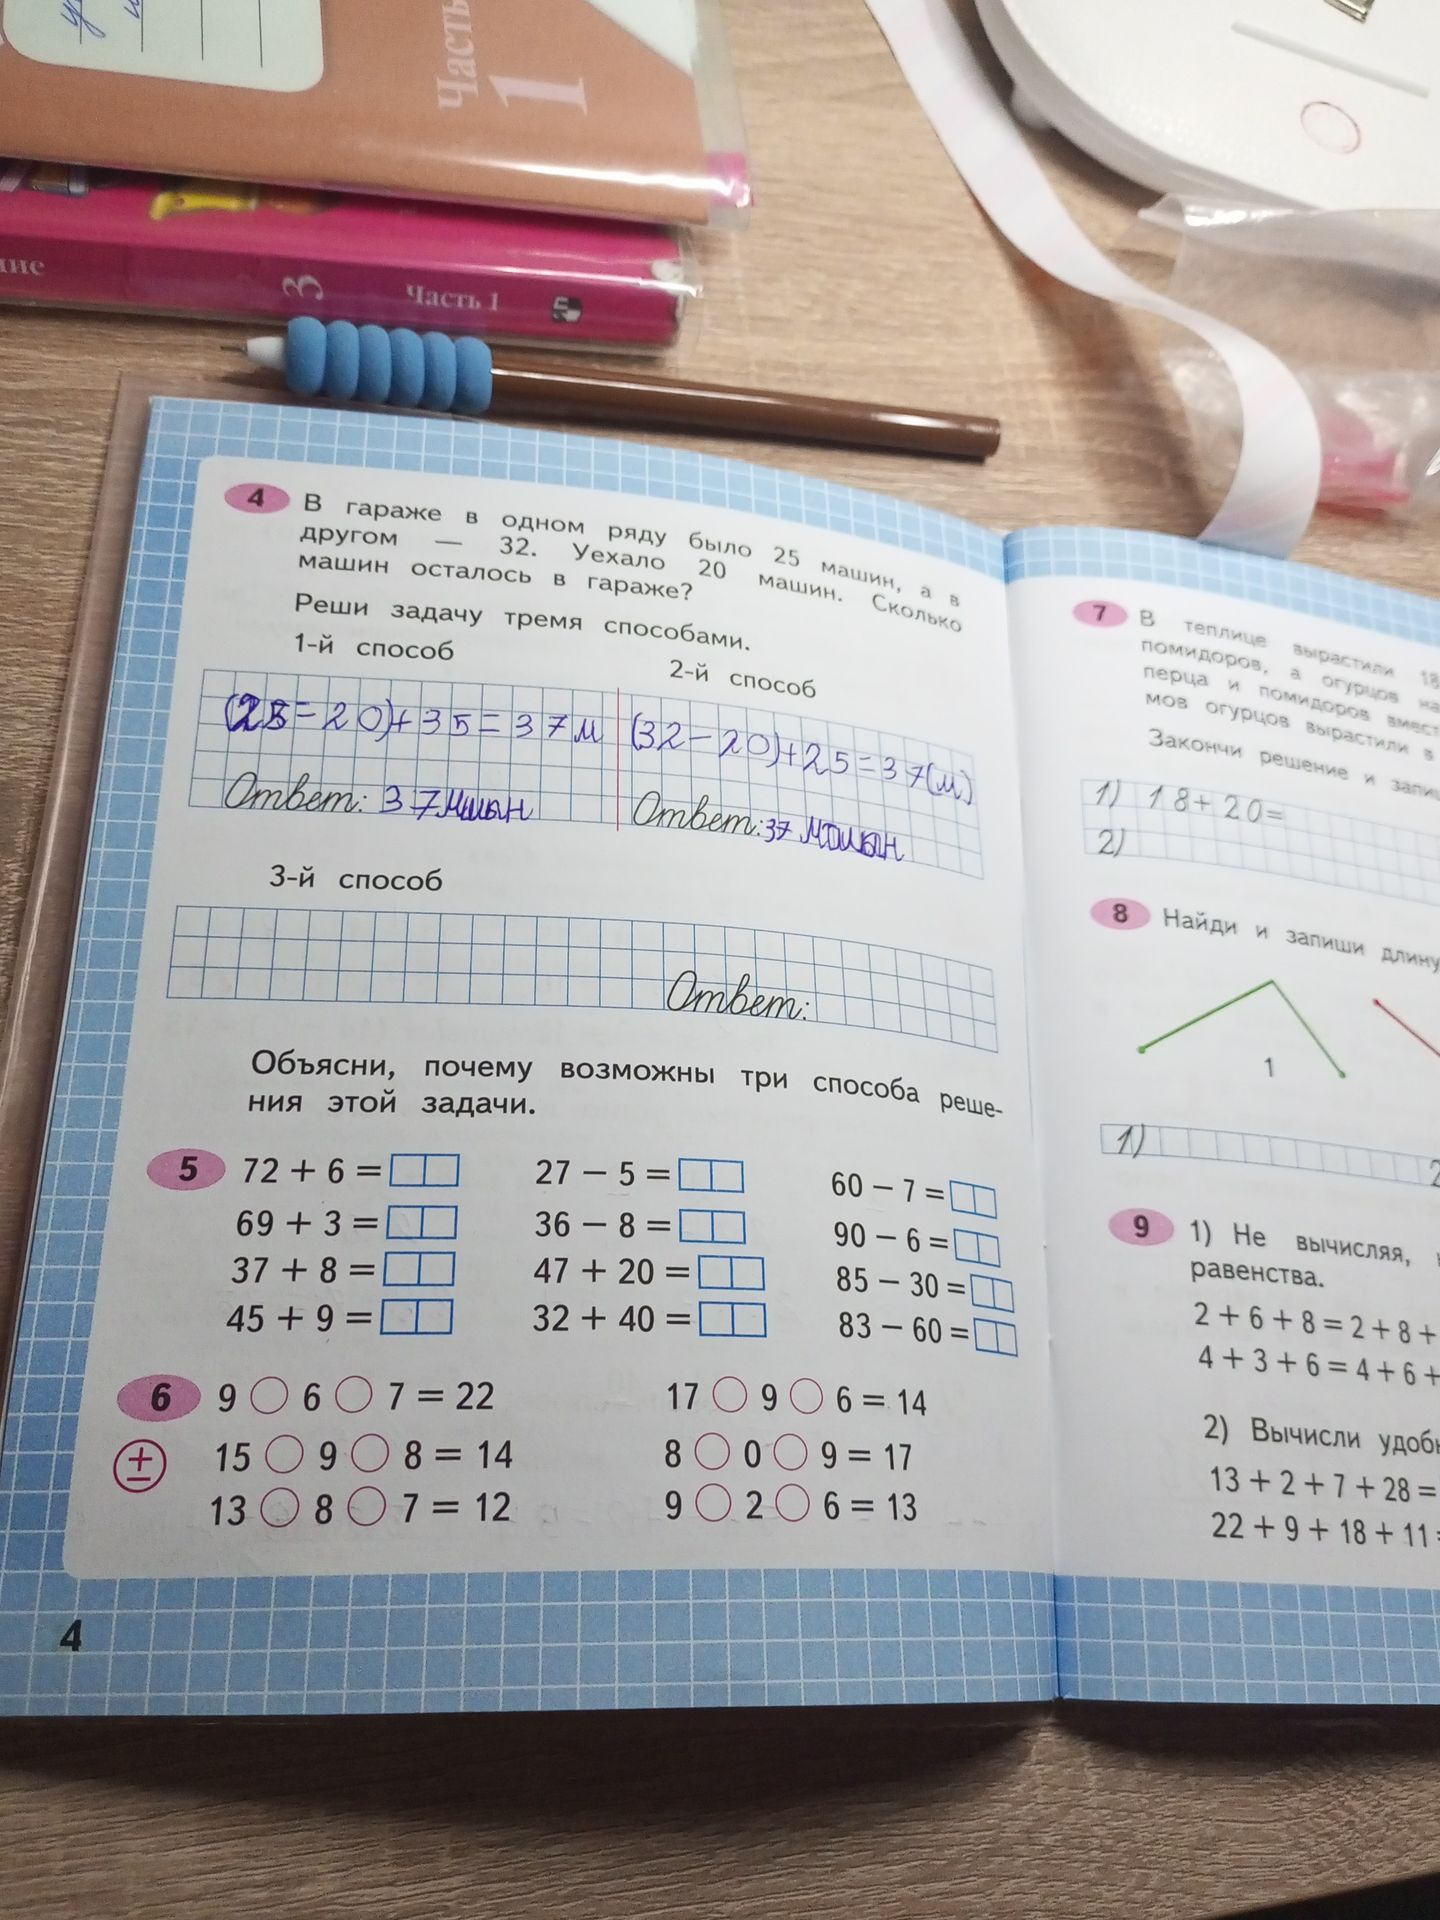 Часть
1
ние
3
Часть 1
4 В гараже в одном ряду было 25 машин, а в
другом — 32. Уехало 20 машин. Сколько
машин осталось в гараже?
Реши задачу тремя способами.
1-й способ
2-й способ
(25-20)+35=37м
(32-20)+25=37(м)
Ответ: 37
Ответ: 37 машин
3-й способ
Ответ:
Объясни, почему возможны три способа реше-
ния этой задачи.
5 72 + 6 = 27 − 5 = 60 − 7 =
69 + 3 = 36 − 8 = 90 − 6 =
37 + 8 = 47 + 20 = 85 − 30 =
45 + 9 = 32 + 40 = 83 − 60 =
6 9 ○ 6 ○ 7 = 22 17 ○ 9 ○ 6 = 14
± 15 ○ 9 ○ 8 = 14 8 ○ 0 ○ 9 = 17
13 ○ 8 ○ 7 = 12 9 ○ 2 ○ 6 = 13
4
7 В теплице вырастили 18
помидоров, а огурцов на
перца и помидоров вмест
мов огурцов вырастили в
Закончи решение и запи
1) 18+20=
2)
8 Найди и запиши длину
1
1)
2
9 1) Не вычисляя,
равенства.
2 + 6 + 8 = 2 + 8 +
4 + 3 + 6 = 4 + 6 +
2) Вычисли удоб
13 + 2 + 7 + 28 =
22 + 9 + 18 + 11 =